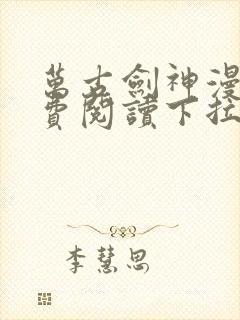 萬古劍神漫
費閱讀下拉
李慧思